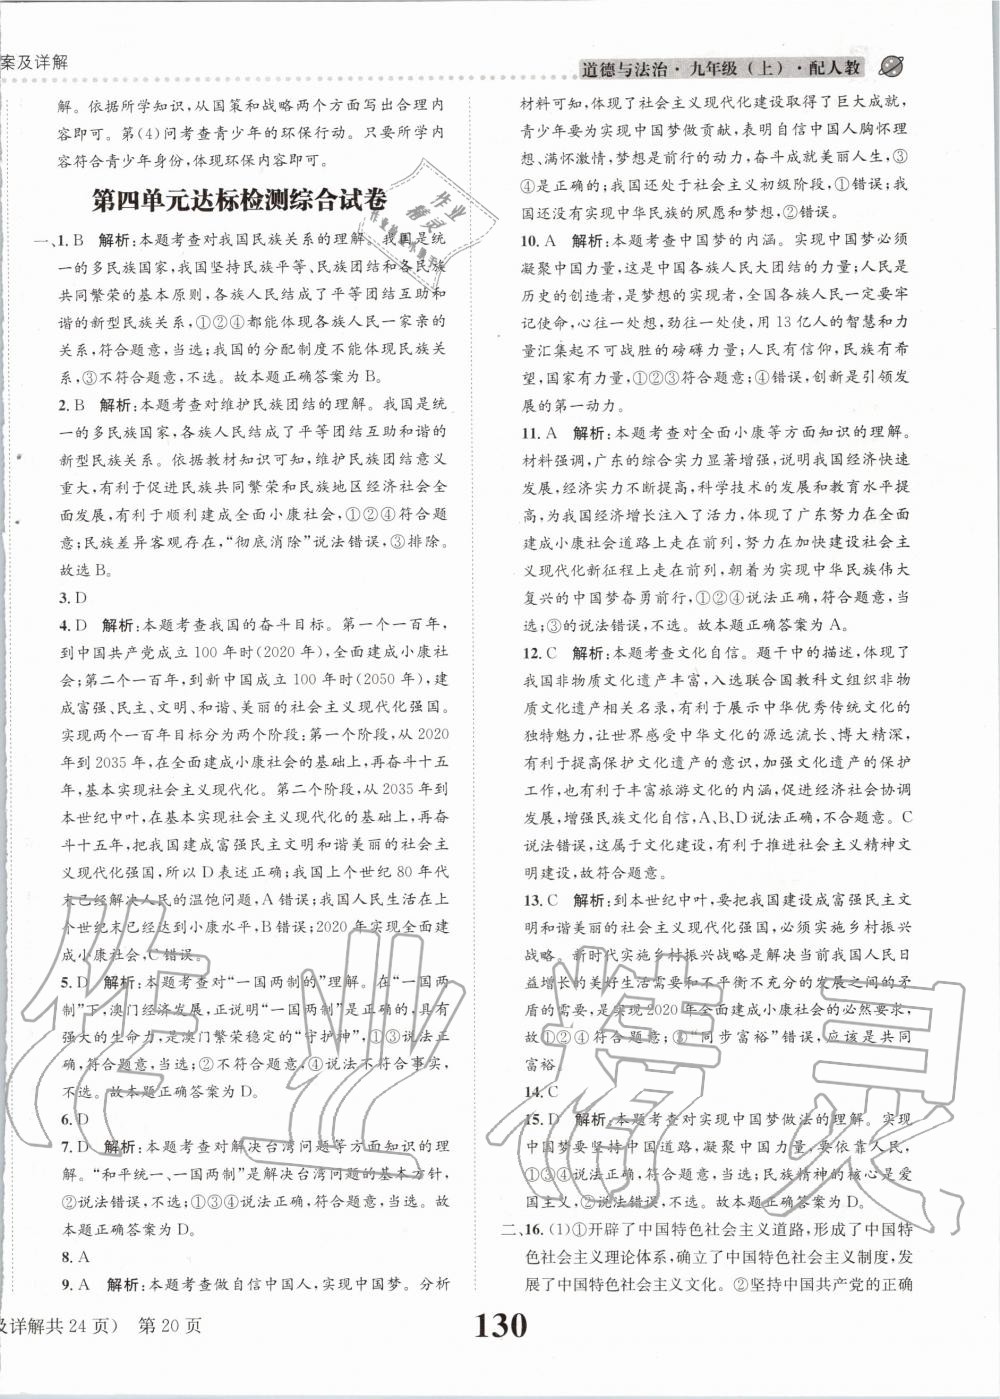 案及详解
道德与法治·九年级（上）·配人教
解。依据所学知识，从国策和战略两个方面写出合理内
容即可。第(4)问考查青少年的环保行动。只要所学内
容符合青少年身份，体现环保内容即可。
第四单元达标检测综合试卷
一、1. B 解析：本题考查对我国民族关系的理解。我国是统
一的多民族国家，我国坚持民族平等、民族团结和各民族
共同繁荣的基本原则，各族人民结成了平等团结互助和
谐的新型民族关系，①②④都能体现各族人民一家亲的
关系，符合题意，当选；我国的分配制度不能体现民族关
系，③不符合题意，不选。故本题正确答案为 B。
2. B 解析：本题考查对维护民族团结的理解。我国是统
一的多民族国家，各族人民结成了平等团结互助和谐的
新型民族关系。依据教材知识可知，维护民族团结意义
重大，有利于促进民族共同繁荣和民族地区经济社会全
面发展，有利于顺利建成全面小康社会，①②④符合题
意；民族差异客观存在，“彻底消除”说法错误，③排除。
故选 B。
3. D
4. D 解析：本题考查我国的奋斗目标。第一个一百年，
到中国共产党成立 100 年时(2020 年)，全面建成小康社
会；第二个一百年，到新中国成立 100 年时(2050 年)，建
成富强、民主、文明、和谐、美丽的社会主义现代化强国。
实现两个一百年目标分为两个阶段：第一个阶段，从 2020
年到 2035 年，在全面建成小康社会的基础上，再奋斗十五
年，基本实现社会主义现代化。第二个阶段，从 2035 年到
本世纪中叶，在基本实现社会主义现代化的基础上，再奋
斗十五年，把我国建成富强民主文明和谐美丽的社会主义
现代化强国，所以 D 表述正确；我国上个世纪 80 年代
末已经解决人民的温饱问题，A 错误；我国人民生活在上个
世纪末已经达到小康水平，B 错误；2020 年实现全面建成
小康社会，C 错误。
5. D 解析：本题考查对“一国两制的”理解。在“一国两
制”下，澳门经济发展，正说明“一国两制”是正确的，具有
强大的生命力，是澳门繁荣稳定的“守护神”，①③④说法
正确，符合题意，当选；②说法太绝对，不符合事实，
不选。故本题正确答案为 D。
6. D
7. D 解析：本题考查对解决台湾问题等方面知识的理
解。“和平统一、一国两制”是解决台湾问题的基本方针，
②说法错误，不选；①③④说法正确，符合题意，当选。故
本题正确答案为 D。
8. A
9. A 解析：本题考查做自信中国人，实现中国梦。分析
材料可知，体现了社会主义现代化建设取得了巨大成就，
青少年要为实现中国梦做贡献，表明自信中国人胸怀理
想、满怀激情，梦想是前行的动力，奋斗成就美丽人生，③
④符合题意；我国还处于社会主义初级阶段，①错误；我
国还没有实现中华民族的夙愿和梦想，②错误。
10. A 解析：本题考查中国梦的内涵。实现中国梦必须
凝聚中国力量，这是中国各族人民大团结的力量。人民是
历史的创造者，是梦想的实现者，全国各族人民一定要牢
记使命，心往一处想，劲往一处使，用 13 亿人的智慧和力
量汇集起不可战胜的磅礴力量；人民有信仰，民族有希
望，国家有力量，①②③符合题意；④错误，创新是引领发
展的第一动力。
11. A 解析：本题考查对全面小康等方面知识的理解。
材料强调，广东的综合实力显著增强，说明我国经济快速
发展，经济实力不断提高，科学技术的发展和教育水平提
高，为我国经济增长注入了活力，体现了广东努力在全面
建成小康社会道路上走在前列，努力在加快建设社会主
义现代化新征程上走在前列，朝着为实现中华民族伟大
复兴的中国梦奋勇前行，①②④说法正确，符合题意，当
选；③的说法错误，不选。故本题正确答案为 A。
12. C 解析：本题考查文化自信。题干中的描述，体现了
我国非物质文化遗产丰富，入选联合国教科文组织非物
质文化遗产的项目众多，有利于展示中华优秀传统文化的
独特魅力，让世界感受中华文化的源远流长、博大精深，
有利于提高保护文化遗产的意识，加强文化遗产的保护
工作，也有利于丰富旅游文化的内涵，促进经济社会协调
发展，增强民族文化自信，A、B、D 说法正确，不合题意。C
说法错误，这属于文化建设，有利于推进社会主义精神文
明建设，故符合题意。
13. C 解析：到本世纪中叶，要把我国建设成富强民主文
明和谐美丽的社会主义现代化强国，必须实施乡村振兴
战略。新时代实施乡村振兴战略是解决当前人民日
益增长的美好生活需要和不平衡不充分的发展之间的矛
盾的需要，是实现 2020 年全面建成小康社会的必然要求，
故①②④符合题意；③“同步富裕”错误，应该是共同
富裕。
14. C
15. D 解析：本题考查对实现中国梦做法的理解。实现
中国梦要坚持中国道路，凝聚中国力量，要依靠人民，
①③④符合题意，当选；民族精神的核心是爱
国主义，②说法错误，不选。故本题正确答案为 D。
二、16. (1)①开辟了中国特色社会主义道路，形成了中国特
色社会主义理论体系，确立了中国特色社会主义制度，发
展了中国特色社会主义文化。②坚持中国共产党的正确
及详解共 24 页） 第 20 页
130
作业精灵